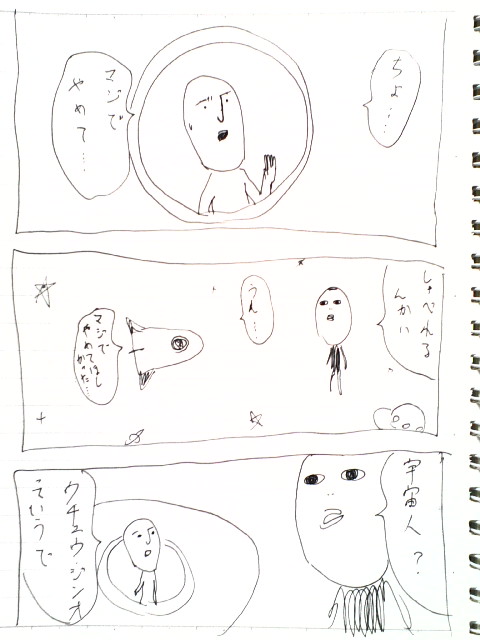 ちょ……
マジで
やめて……
しゃべれる
んかい
うん…
マジで
やめてほし
かった…
宇宙人？
ウチュウジンオ
そいうで